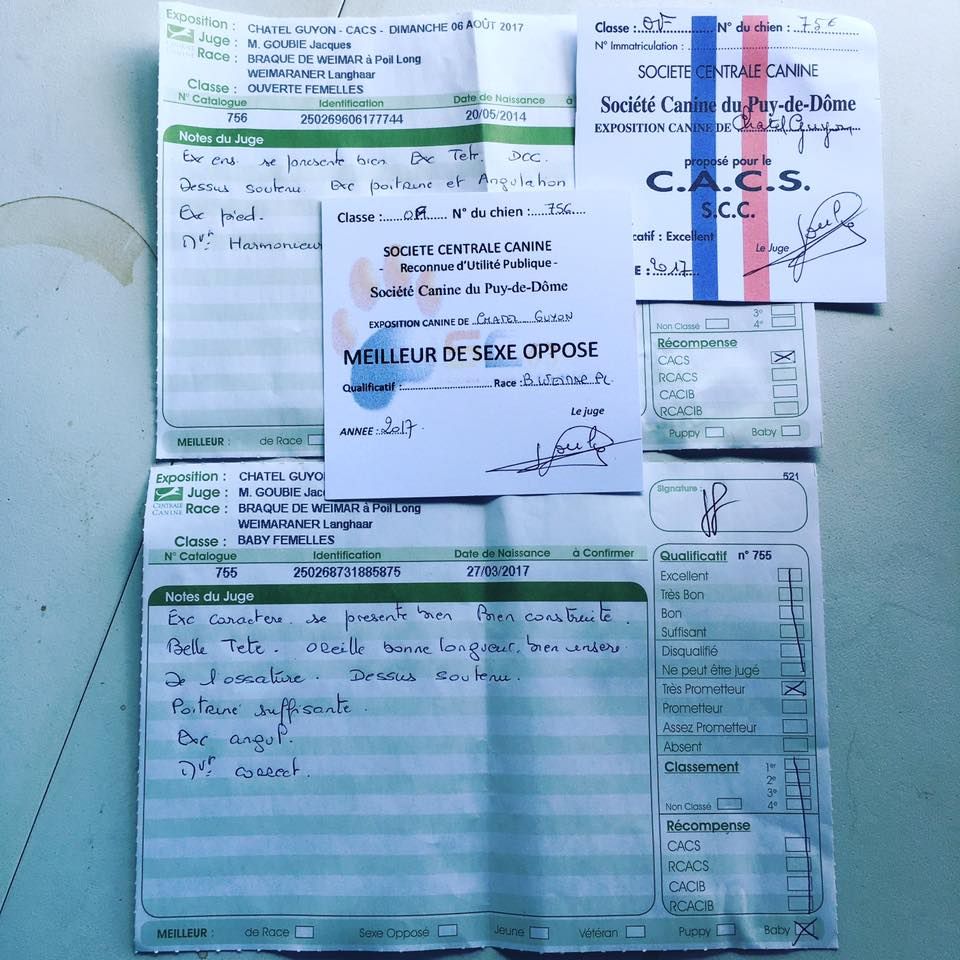 Exposition : CHATEL GUYON - CACS - DIMANCHE 06 AOÛT 2017
Juge : M. GOUBIE Jacques
Race : BRAQUE DE WEIMAR à Poil Long
WEIMARANER Langhaar
Classe : OUVERTE FEMELLES
N° Catalogue Identification Date de Naissance à
756 250269606177744 20/05/2014
Notes du Juge
Exc ens. se presente bien. Exc Tete. DCC.
Dessus soutenu. Exc poitrine et Angulation
Exc pied.
Mvt Harmonieux
MEILLEUR : de Race
Non Classé 3e
4e
Récompense
CACS
RCACS
CACIB
RCACIB
Puppy Baby
Classe : OF N° du chien : 756
N° Immatriculation :
SOCIETE CENTRALE CANINE
Société Canine du Puy-de-Dôme
EXPOSITION CANINE DE Chatel Guyon
proposé pour le
C.A.C.S.
S.C.C.
catif : Excellent
Le Juge
E : 2017
Classe : OF N° du chien : 756
SOCIETE CENTRALE CANINE
- Reconnue d'Utilité Publique -
Société Canine du Puy-de-Dôme
EXPOSITION CANINE DE CHATEL GUYON
MEILLEUR DE SEXE OPPOSE
Qualificatif : Race : B. WEIMAR PL.
Le juge
ANNEE : 2017.
Exposition : CHATEL GUYO
Juge : M. GOUBIE Jac
CENTRALE CANINE
Race : BRAQUE DE WEIMAR à Poil Long
WEIMARANER Langhaar
Classe : BABY FEMELLES
N° Catalogue Identification Date de Naissance à Confirmer
755 250268731885875 27/03/2017
Notes du Juge
Exc caractere. se presente bien Bien construite.
Belle Tete. oreille bonne longueur, bien insere
De l'ossature. Dessus soutenu.
Poitrine suffisante.
Exc angul.
Mvt correct.
521
Signature :
Qualificatif n° 755
Excellent
Très Bon
Bon
Suffisant
Disqualifié
Ne peut être jugé
Très Prometteur
Prometteur
Assez Prometteur
Absent
Classement 1er
2e
3e
Non Classé 4e
Récompense
CACS
RCACS
CACIB
RCACIB
MEILLEUR : de Race Sexe Opposé Jeune Vétéran Puppy Baby